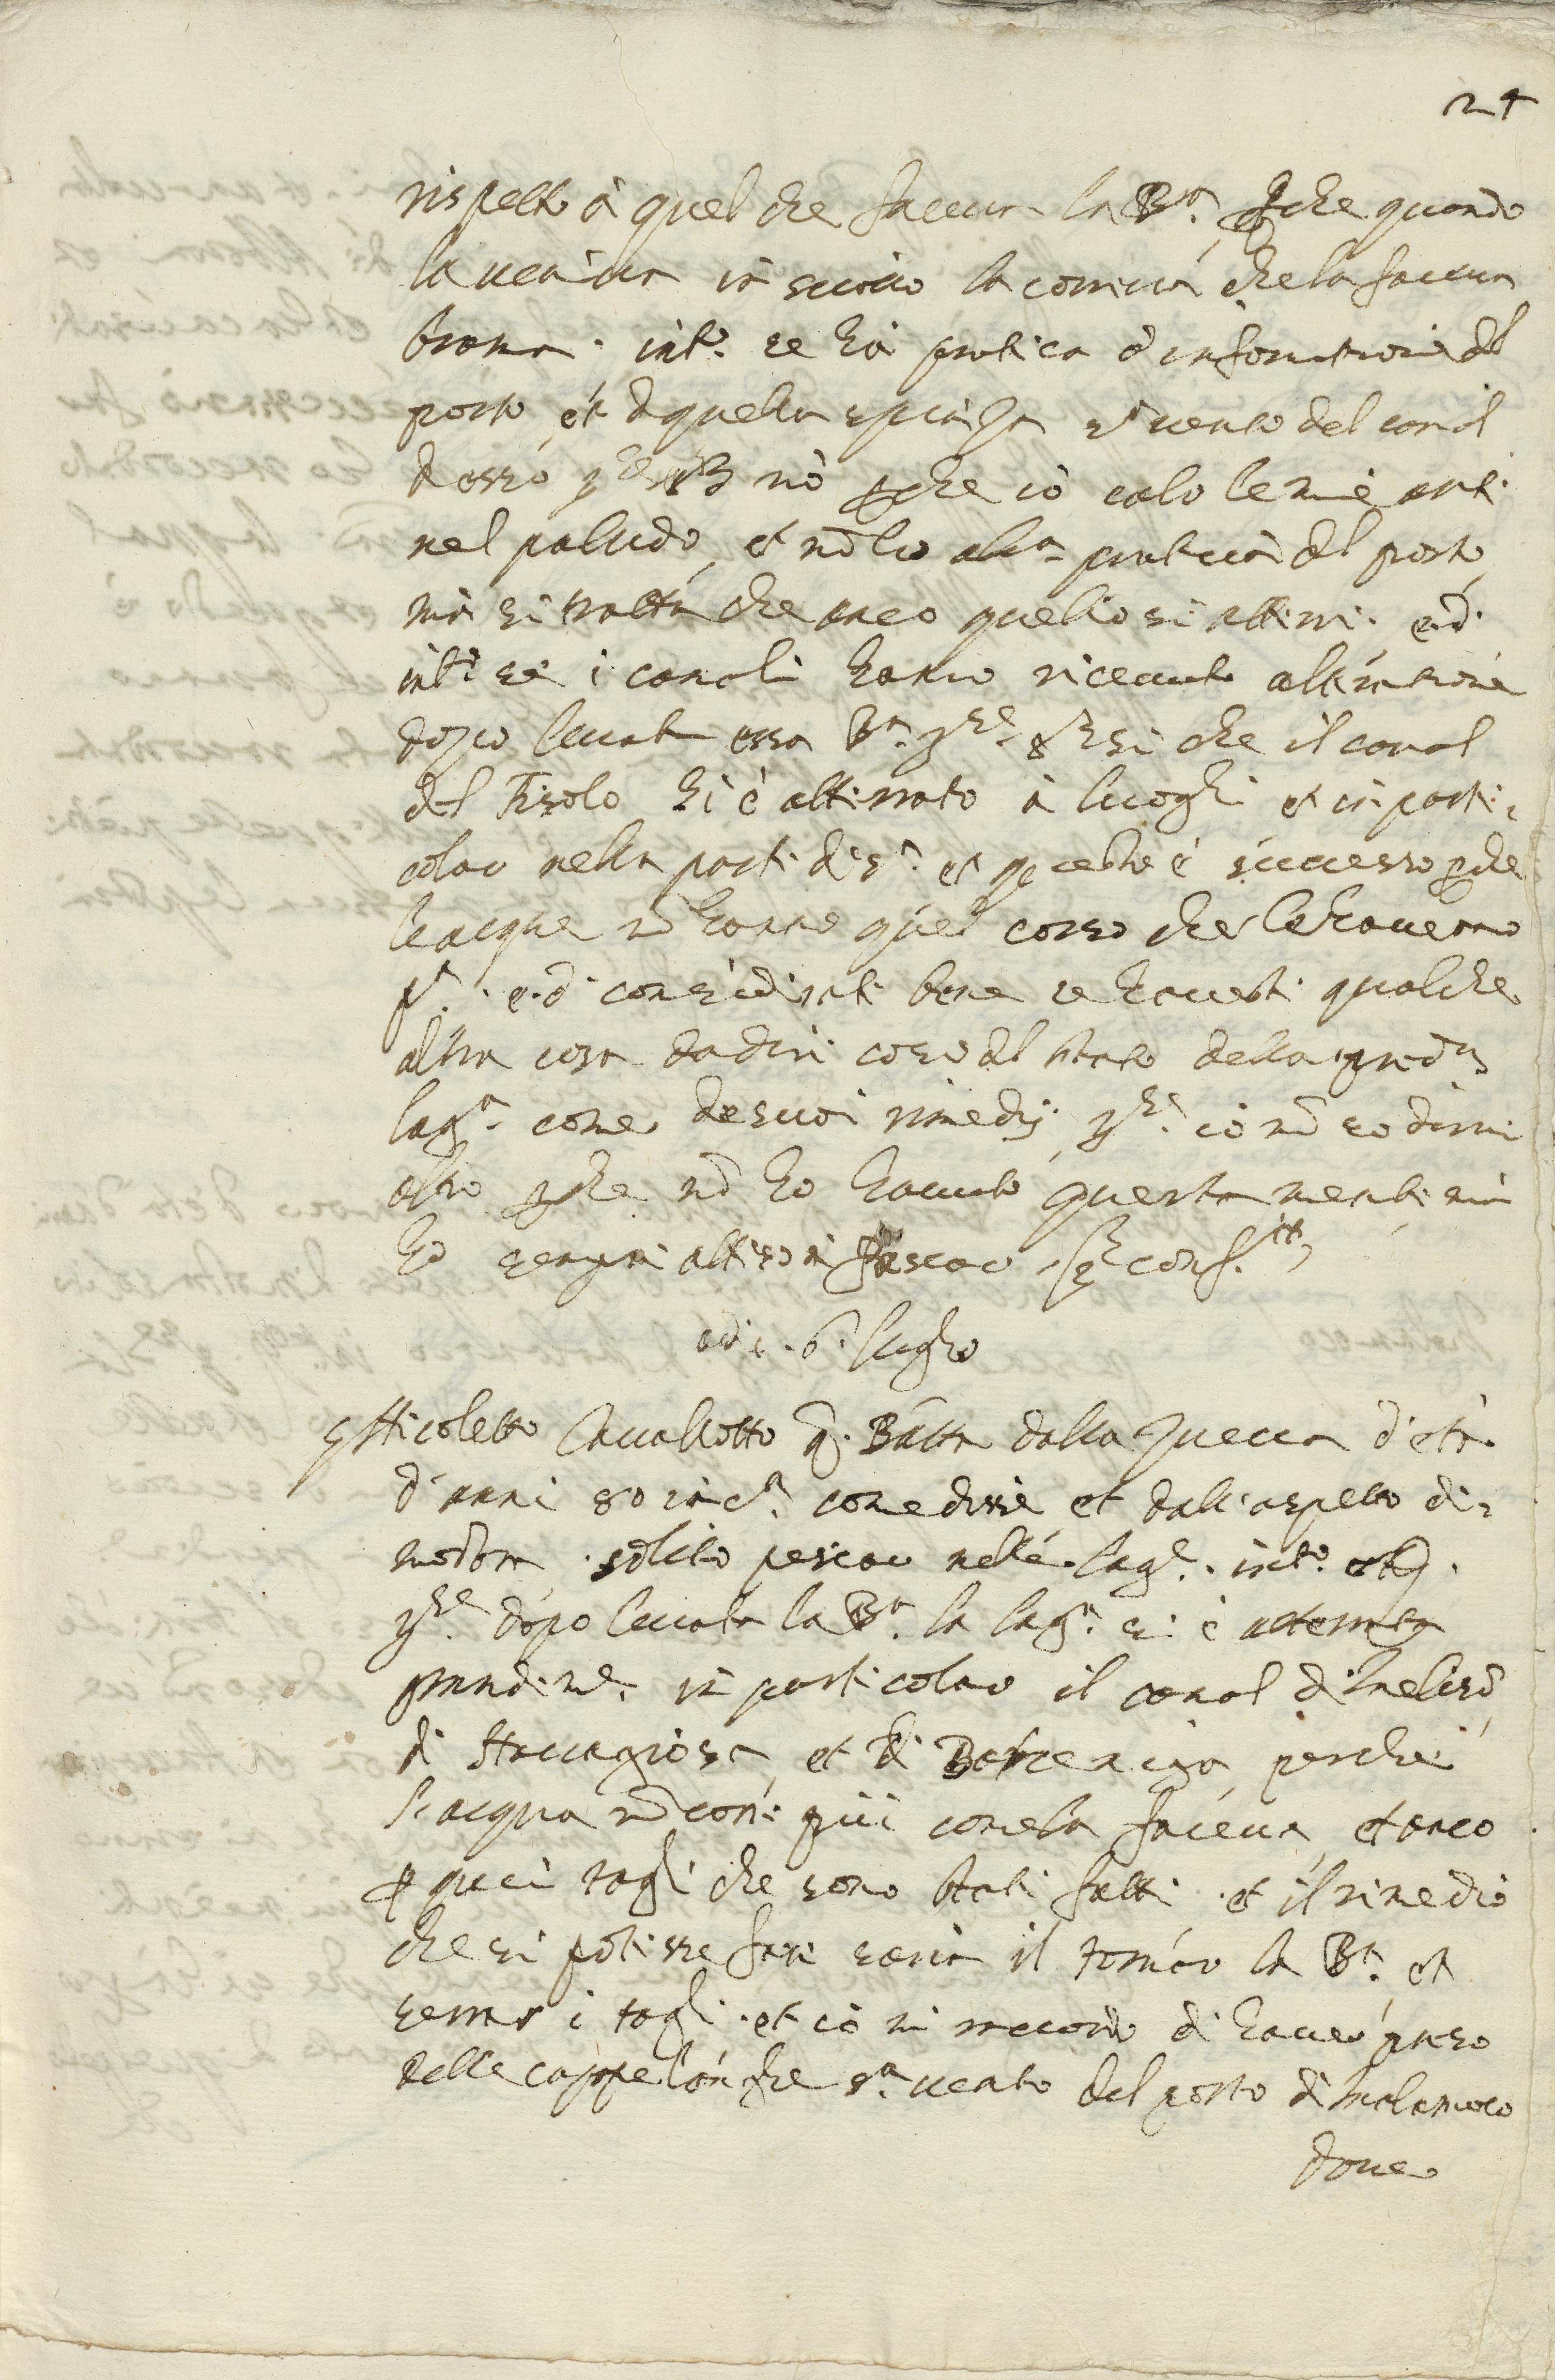 24
rispetto à quel che faceua la B.ta perche quando
la ueniua in sù la correua che la faceua
broma. int.o se hà pratica ò informatione del
porto et di quella spiaza s.a uento del canal
d'esso r.de nò perche iò calo le mie arti
nel paludo, et nõ ho alc.a pratica del porto
mà si tratta che anco quello si atterri. e.d.
int.o se i canali hanno riceuuto alteratione
dopo leuata essa B.ta r.de sig.r si che il canal
del Fisolo si è atterrato à luoghi et in parti=
colar nella parte di s.a et questo è successo perche
le acque nõ hanno quel corso che le haueano
p.a. e.d. considerate bene se haueste qualche
altra cosa da dire così del stato della pred.a
lag.a come de suoi rimedij, r.de iò nõ so dirui
altro perche nõ ho hauuto questa mente mà
ho sempre atteso à pescar. Rel. conf.tt
adi. 6. luglio
S. Nicoletto Cauallotto q. Batta dalla Zuecca d'età
d'anni 80 in c.a come disse et dall'aspetto di=
mostra, solito pescar nelle lag.e. int.o ott.
r.de dopo leuata la B.ta la lag.a si è atterrata
grandem.e in particolar il canal di Melison
di Stauagiosa, et di Bastenaigo, perche
l'acqua nõ corre più come la faceua, et anco
per quei tagli che sono stati fatti. et il rimedio
che si potesse fare saria il tornar la B.ta et
serrar i tagli. et iò mi raccordo di hauer preso
delle cappelonghe s.a uento del porto di Malamoco
doue